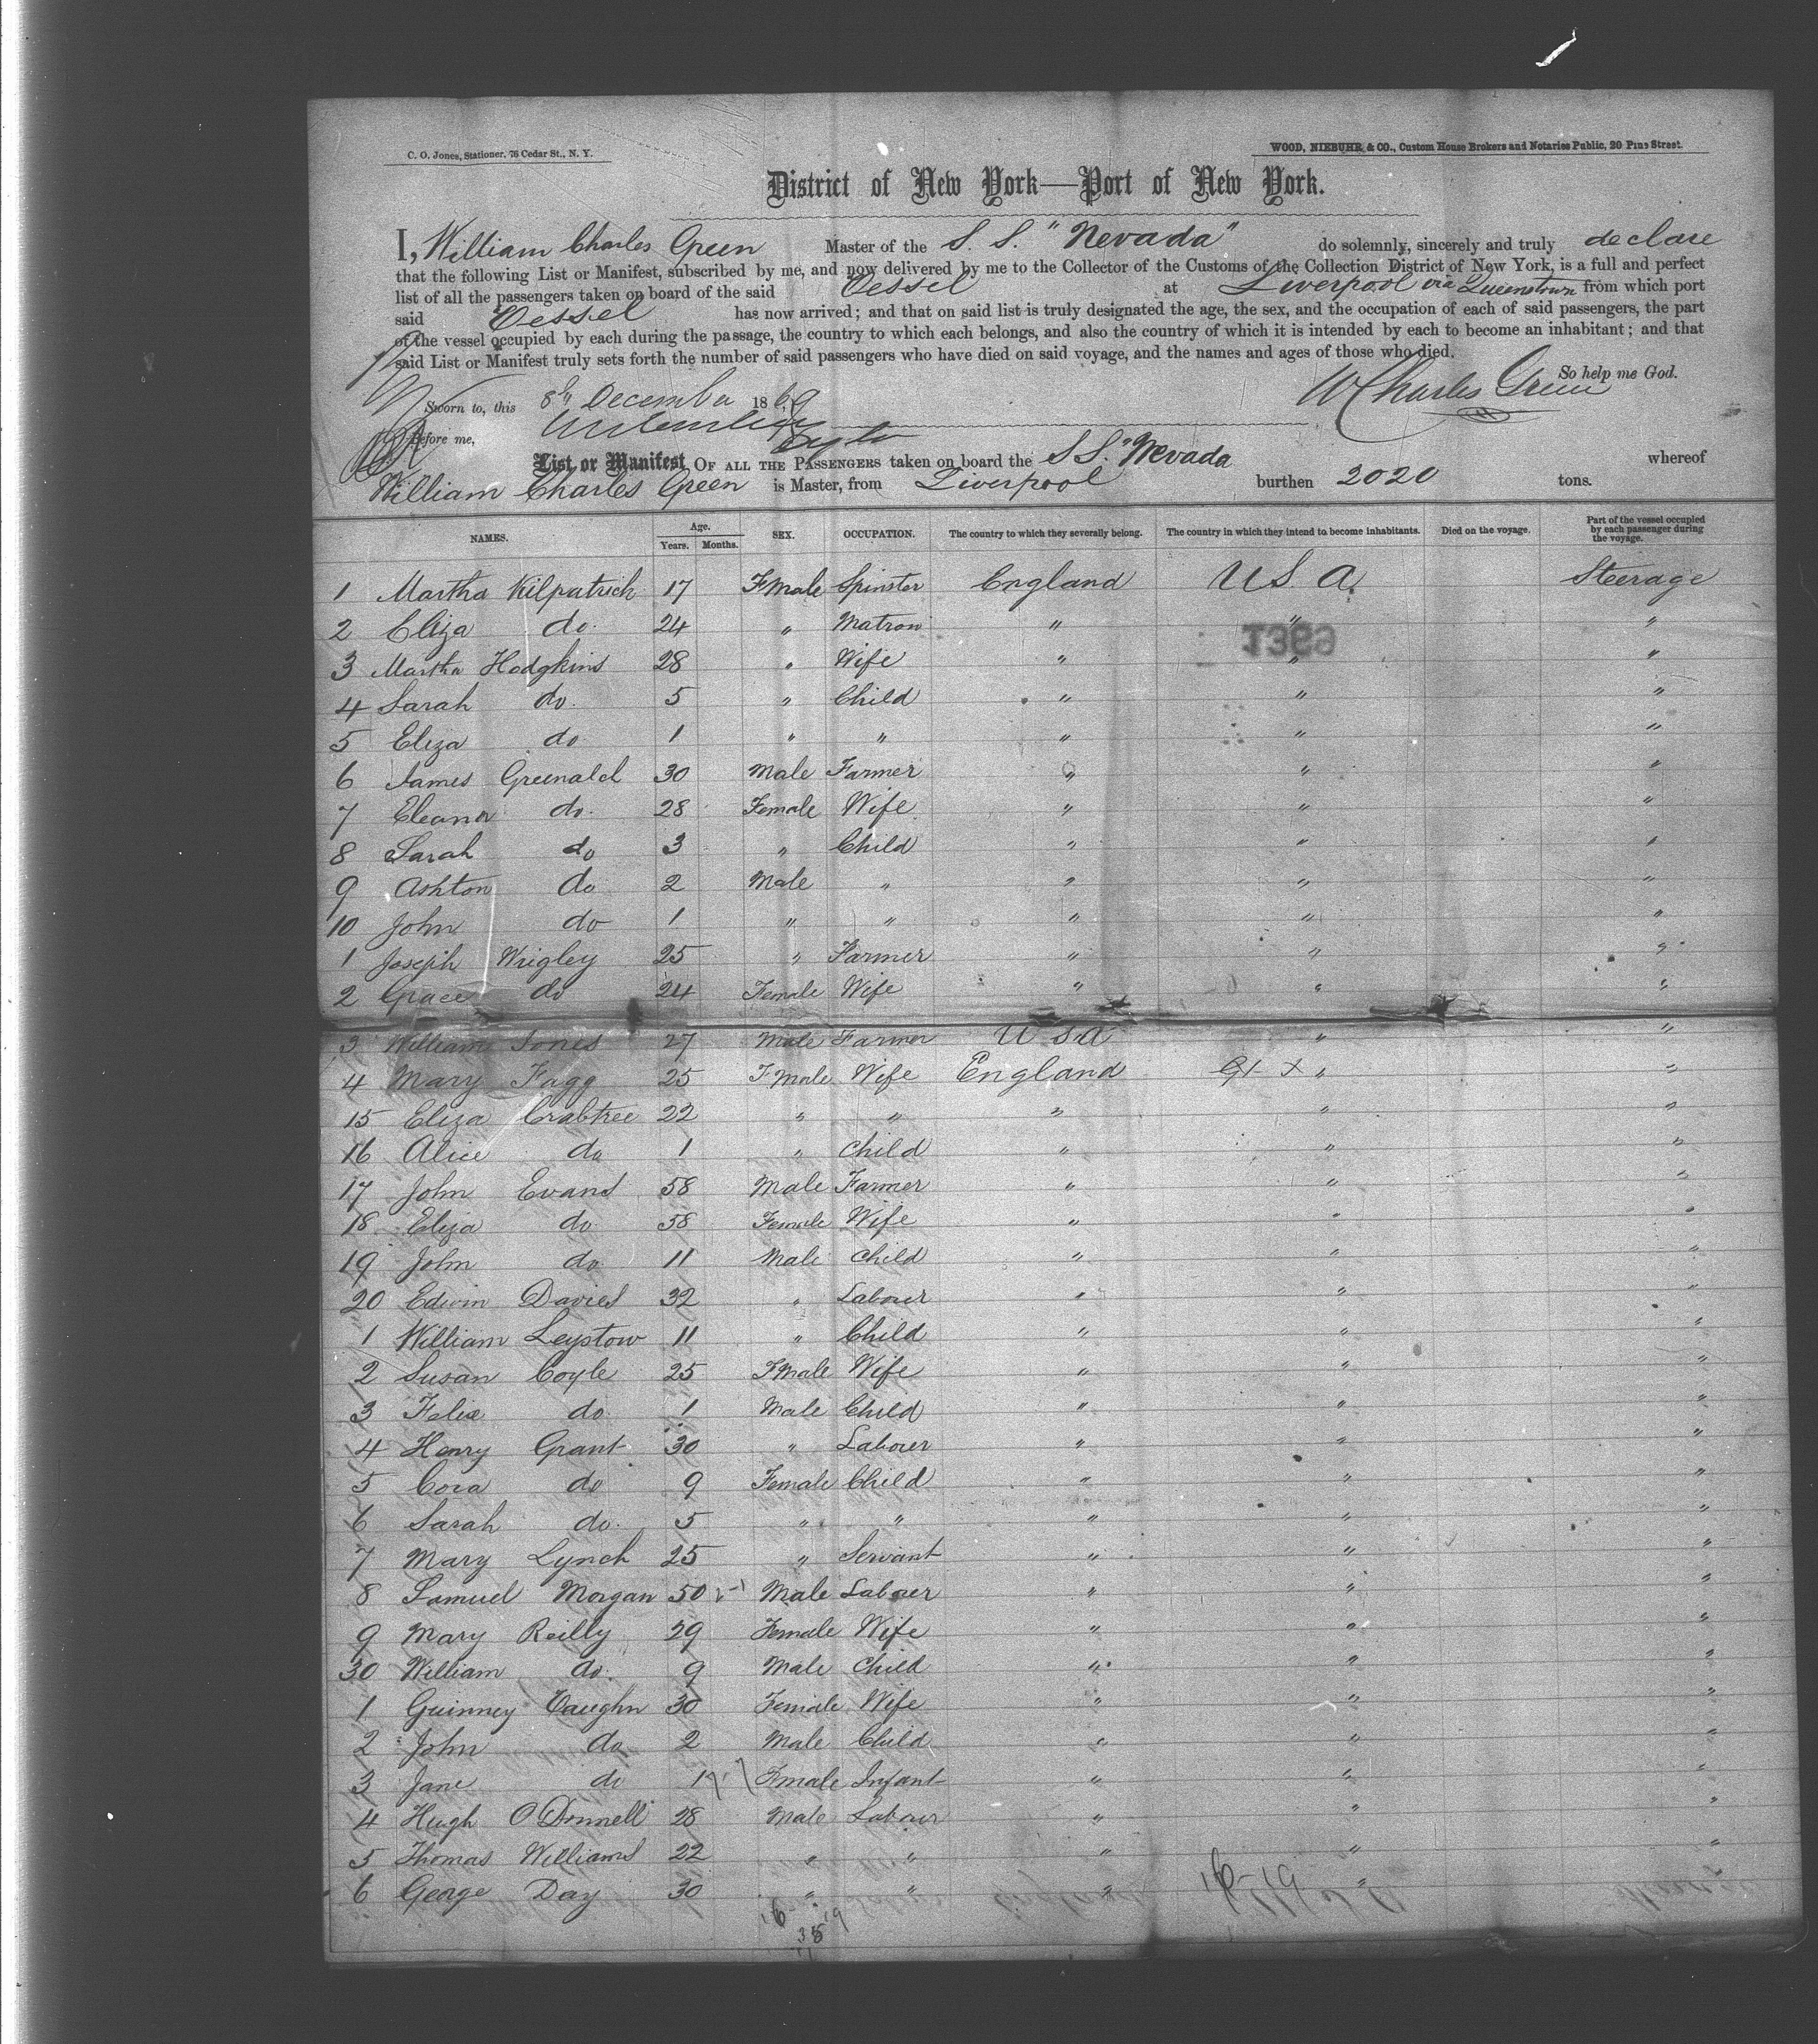 C. O. Jones, Stationer, 76 Cedar St., N. Y.
WOOD, NIEBUHR & CO., Custom House Brokers and Notaries Public, 20 Pine Street.
District of New York—Port of New York.
I, William Charles Green Master of the S. S. "Nevada" do solemnly, sincerely and truly declare
that the following List or Manifest, subscribed by me, and now delivered by me to the Collector of the Customs of the Collection District of New York, is a full and perfect
list of all the passengers taken on board of the said Vessel at Liverpool via Queenstown from which port
said Vessel has now arrived; and that on said list is truly designated the age, the sex, and the occupation of each of said passengers, the part
of the vessel occupied by each during the passage, the country to which each belongs, and also the country of which it is intended by each to become an inhabitant; and that
said List or Manifest truly sets forth the number of said passengers who have died on said voyage, and the names and ages of those who died.
So help me God.
W Charles Green
Sworn to, this 8th December 1869
Before me,
List or Manifest OF ALL THE PASSENGERS taken on board the S.S. "Nevada whereof
William Charles Green is Master, from Liverpool burthen 2020 tons.
NAMES. Age. Years. Months. SEX. OCCUPATION. The country to which they severally belong. The country in which they intend to become inhabitants. Died on the voyage. Part of the vessel occupied by each passenger during the voyage.
1 Martha Kilpatrick 17 Fmale Spinster England U S A. Steerage
2 Eliza do. 24 " Matron " " "
3 Martha Hodgkins 28 " Wife " " "
4 Sarah do. 5 " Child " " "
5 Eliza do 1 " " " " "
6 James Greenald 30 Male Farmer " " "
7 Eleanor do. 28 Female Wife " " "
8 Sarah do 3 " Child " " "
9 Ashton do 2 Male " " " "
10 John do 1 " " " " "
1 Joseph Wrigley 25 " Farmer " " "
2 Grace do 24 Female Wife " " "
3 William Jones 27 Male Farmer U S A " "
4 Mary Fagg 25 Fmale Wife England " "
15 Eliza Crabtree 22 " " " " "
16 Alice do 1 " Child " " "
17 John Evans 58 Male Farmer " " "
18 Eliza do 58 Female Wife " " "
19 John do 11 Male Child " " "
20 Edwin Davies 32 " Labourer " " "
1 William Leystow 11 " Child " " "
2 Susan Coyle 25 Fmale Wife " " "
3 Felix do 1 Male Child " " "
4 Henry Grant 30 " Labourer " " "
5 Cora do 9 Female Child " " "
6 Sarah do. 5 " " " " "
7 Mary Lynch 25 " Servant " " "
8 Samuel Morgan 50 Male Labourer " " "
9 Mary Reilly 29 Female Wife " " "
30 William do. 9 Male Child " " "
1 Guinney Vaughn 30 Female Wife " " "
2 John do 2 Male Child " " "
3 Jane do 1 Fmale Infant " " "
4 Hugh O'Donnell 28 Male Labour " " "
5 Thomas Williams 22 " " " " "
6 George Day 30 " " " " "
16-19
16 19